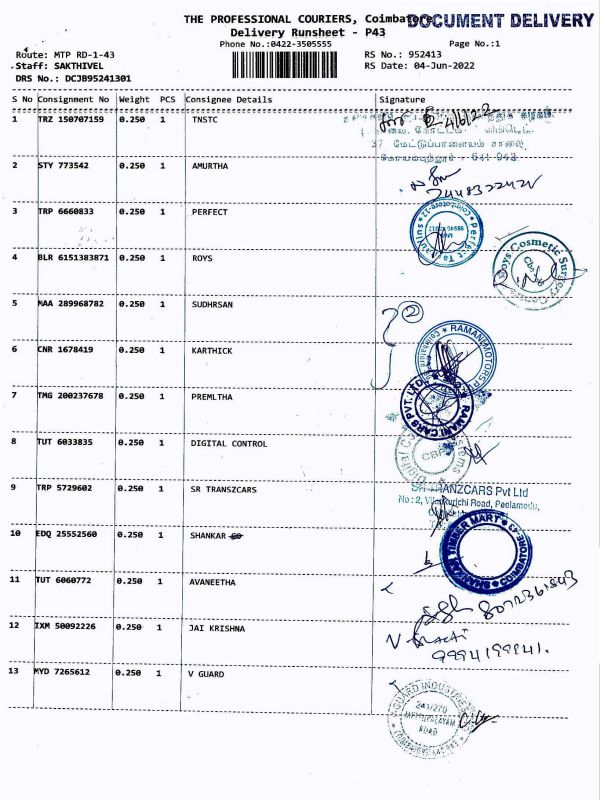 THE PROFESSIONAL COURIERS, Coimbatore
DOCUMENT DELIVERY
Delivery Runsheet - P43
Phone No.:0422-3505555
Page No.:1
Route: MTP RD-1-43
RS No.: 952413
Staff: SAKTHIVEL
RS Date: 04-Jun-2022
DRS No.: DCJB95241301
S No Consignment No Weight PCS Consignee Details Signature
1 TRZ 150707159 0.250 1 TNSTC
4/6/22
37, மேட்டுப்பாளையம் சாலை,
கோயமுத்தூர் - 641 043
2 STY 773542 0.250 1 AMURTHA
3 TRP 6660833 0.250 1 PERFECT
4 BLR 6151383871 0.250 1 ROYS
Roys Cosmetic Surgery Centre
5 MAA 289968782 0.250 1 SUDHRSAN
2
6 CNR 1678419 0.250 1 KARTHICK
RAMANI MOTORS
Coimbatore
7 TMG 200237678 0.250 1 PREMLTHA
RAMANI CARS PVT. LTD.
8 TUT 6033835 0.250 1 DIGITAL CONTROL
CBE
9 TRP 5729602 0.250 1 SR TRANSZCARS
SR TRANZCARS Pvt Ltd
Road, Peelamedu,
10 EDQ 25552560 0.250 1 SHANKAR
TIMBER MART
COIMBATORE-43
11 TUT 6060772 0.250 1 AVANEETHA
8072361543
12 IXM 50092226 0.250 1 JAI KRISHNA
9994199841.
13 MYD 7265612 0.250 1 V GUARD
V GUARD INDUSTRIES
METTUPALAYAM
ROAD